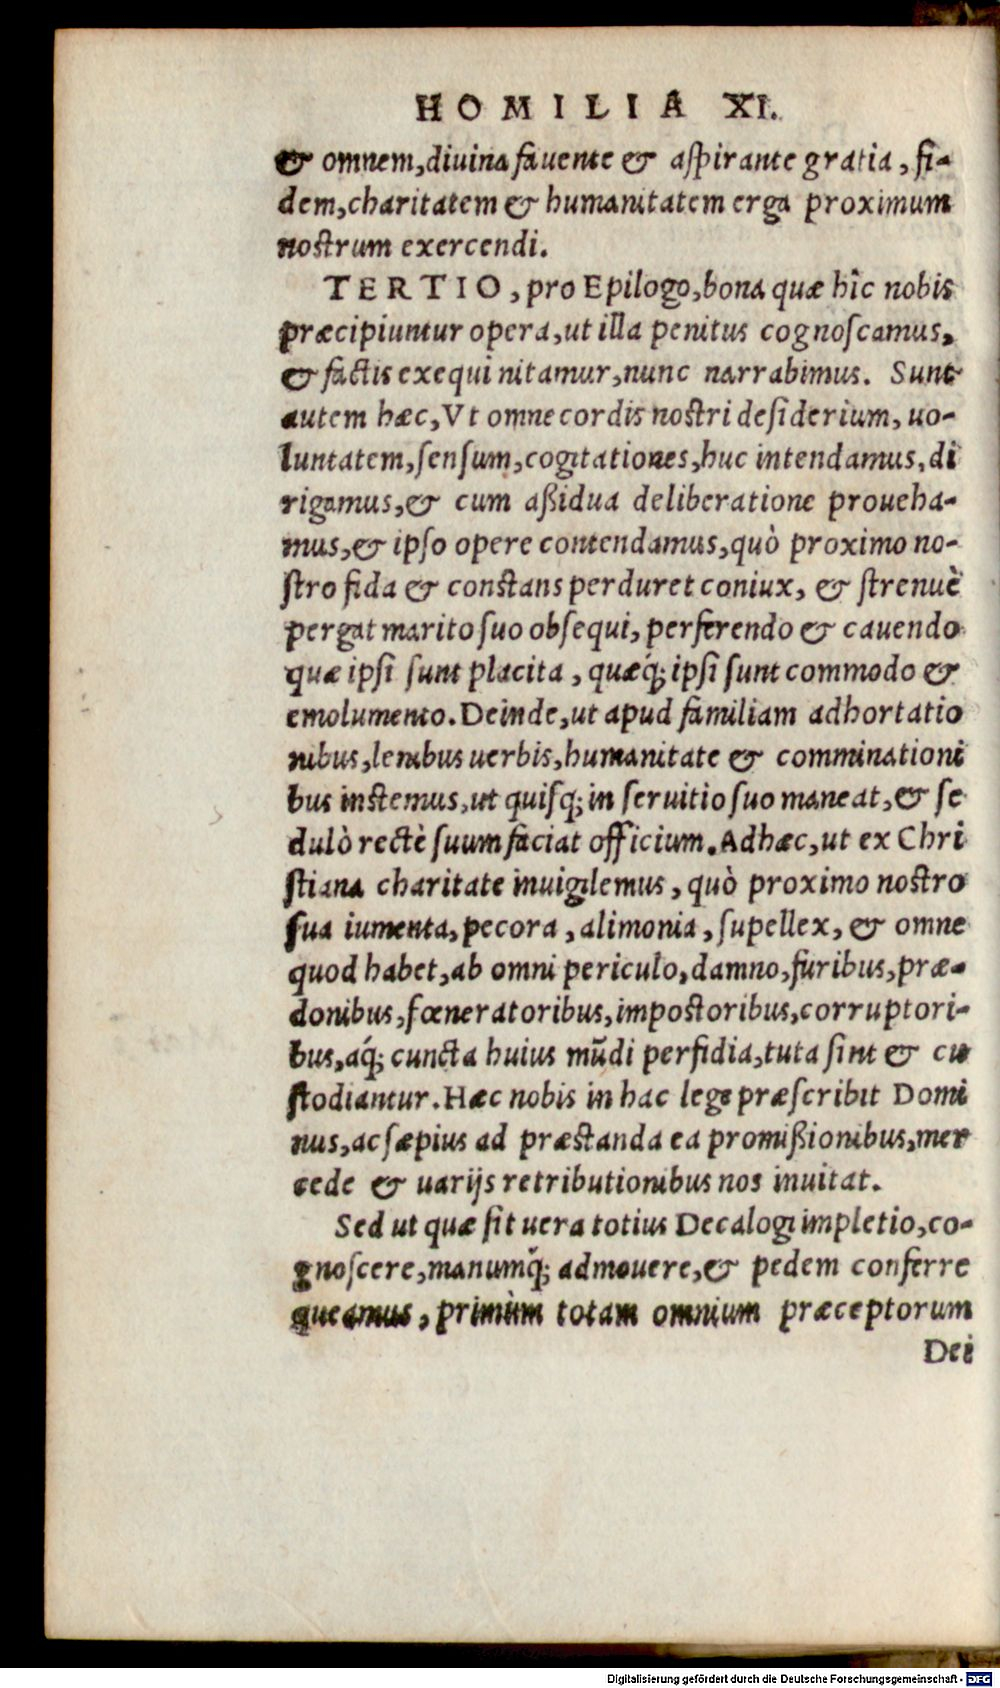 HOMILIA XI.
& omnem, diuina fauente & aſpirante gratia, fi-
dem, charitatem & humanitatem erga proximum
noſtrum exercendi.
TERTIO, pro Epilogo, bona quæ hîc nobis
præcipiuntur opera, ut illa penitus cognoſcamus,
& factis exequi nitamur, nunc narrabimus. Sunt
autem hæc, Vt omne cordis noſtri deſiderium, uo-
luntatem, ſenſum, cogitationes, huc intendamus, di
rigamus, & cum aßidua deliberatione proueha-
mus, & ipſo opere contendamus, quò proximo no-
ſtro fida & conſtans perduret coniux, & ſtrenuè
pergat marito ſuo obſequi, perferendo & cauendo
quæ ipſi ſunt placita, quæq́; ipſi ſunt commodo &
emolumento. Deinde, ut apud familiam adhortatio
nibus, lenibus uerbis, humanitate & comminationi
bus inſtemus, ut quiſq; in ſeruitio ſuo maneat, & ſe
dulò rectè ſuum faciat officium. Adhæc, ut ex Chri
ſtiana charitate inuigilemus, quò proximo noſtro
ſua iumenta, pecora, alimonia, ſupellex, & omne
quod habet, ab omni periculo, damno, furibus, præ-
donibus, fœneratoribus, impoſtoribus, corruptori-
bus, aq́; cuncta huius mũdi perfidia, tuta ſint & cu
ſtodiantur. Hæc nobis in hac lege præſcribit Domi
nus, ac ſæpius ad præſtanda ea promißionibus, mer
cede & uarijs retributionibus nos inuitat.
Sed ut quæ ſit uera totius Decalogi impletio, co-
gnoſcere, manumq́; admouere, & pedem conferre
queamus, primùm totam omnium præceptorum
Dei
Digitalisierung gefördert durch die Deutsche Forschungsgemeinschaft - DFG